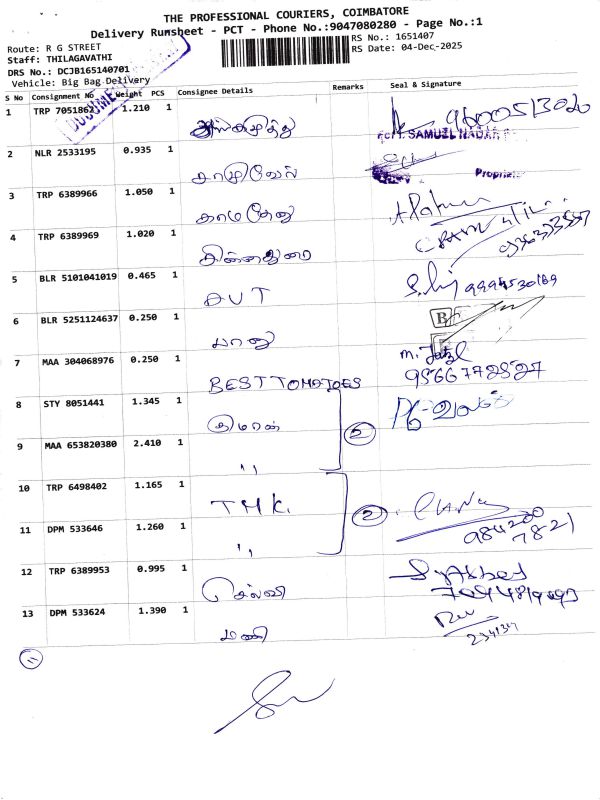 THE PROFESSIONAL COURIERS, COIMBATORE
Delivery Runsheet - PCT - Phone No.:9047080280 - Page No.:1
Route: R G STREET
RS No.: 1651407
Staff: THILAGAVATHI
RS Date: 04-Dec-2025
DRS No.: DCJB165140701
Vehicle: Big Bag Delivery
S No Consignment No Weight PCS Consignee Details Remarks Seal & Signature
1 TRP 7051862 1.210 1 9600513020
SAMUEL NADAR
2 NLR 2533195 0.935 1 காமுவேல்
Propriet
3 TRP 6389966 1.050 1 காமதேனு
4 TRP 6389969 1.020 1 சின்னதுரை
5 BLR 5101041019 0.465 1 AVT
6 BLR 5251124637 0.250 1 யானு
7 MAA 304068976 0.250 1 BEST TOMATOES 9566772827
8 STY 8051441 1.345 1 இமான் 2
9 MAA 653820380 2.410 1 ,,
10 TRP 6498402 1.165 1 TMK. 2
11 DPM 533646 1.260 1 ,, 984200
7821
12 TRP 6389953 0.995 1 செல்வி
13 DPM 533624 1.390 1 மணி
11